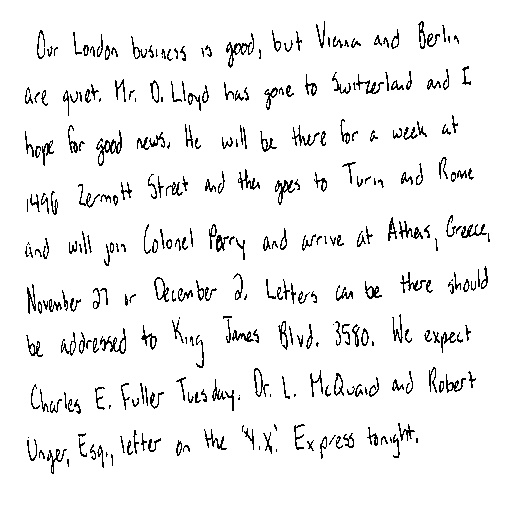 Our London business is good, but Vienna and Berlin
are quiet. Mr. D. Lloyd has gone to Switzerland and I
hope for good news. He will be there for a week at
1496 Zermott Street and then goes to Turin and Rome
and will join Colonel Parry and arrive at Athens, Greece,
November 27 or December 2. Letters can be there should
be addressed to King James Blvd. 3580. We expect
Charles E. Fuller Tuesday. Dr. L. McQuaid and Robert
Unger, Esq., letter on the "Y.X." Express tonight.